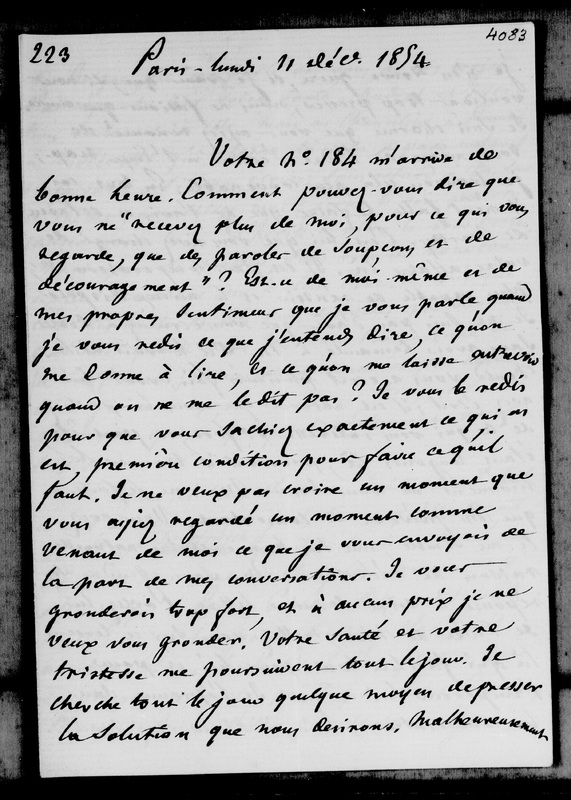 223
4083
Paris - lundi 11 déc. 1854
Votre N° 184 m'arrive de
bonne heure. Comment pouvez-vous dire que
vous ne "recevez plus de moi, pour ce qui vous
regarde, que des paroles de soupçons et de
découragement" ? Est-ce de moi-même et de
mes propres sentimens que je vous parle quand
je vous redis ce que j'entends dire, ce qu'on
me donne à lire, et ce qu'on me laisse entrevoir
quand on ne me le dit pas ? Je vous le redis
pour que vous sachiez exactement ce qui en
est, première condition pour faire ce qu'il
faut. Je ne veux pas croire un moment que
vous ayiez regardé un moment comme
venant de moi ce que je vous envoyois de
la part de mes conversations. Je vous
gronderois trop fort, et à aucun prix je ne
veux vous gronder. Votre santé et votre
tristesse me poursuivent tout le jour. Je
cherche tout le jour quelque moyen de presser
la solution que nous desirons. Malheureusement